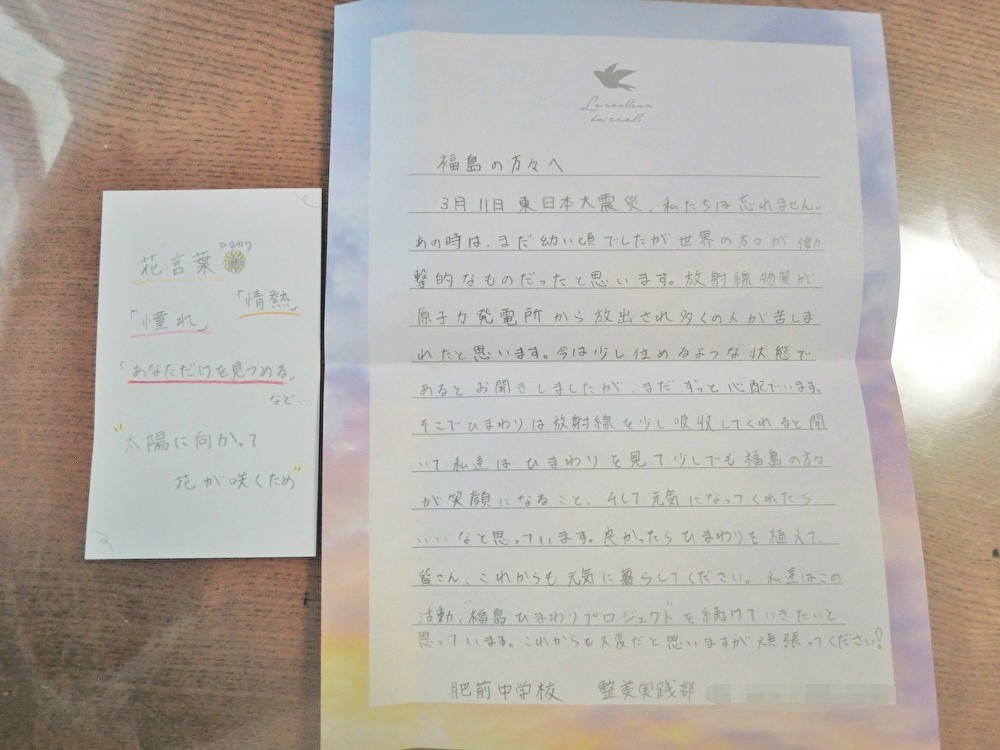 花言葉
ひまわり
「情熱」
「憧れ」
「あなただけを見つめる」
など…
"太陽に向かって
花が咲くため"
La couleur
du ciel
福島の方々へ
3月11日東日本大震災、私たちは忘れません。
あの時は、まだ幼い頃でしたが世界の方々が衝
撃的なものだったと思います。放射線物質が
原子力発電所から放出され多くの人が苦しま
れたと思います。今は少し住めるような状態で
あるとお聞きしましたが、まだずっと心配でいます。
そこでひまわりは放射線を少し吸収してくれると聞
いて私達はひまわりを見て少しでも福島の方々
が笑顔になること、そして元気になってくれたら
いいなと思っています。良かったらひまわりを植えて、
皆さん、これからも元気に暮らしてください。私達はこの
活動、"福島ひまわりプロジェクト"を続けていきたいと
思っています。これからも大変だと思いますが頑張ってください!
肥前中学校 整美実践部